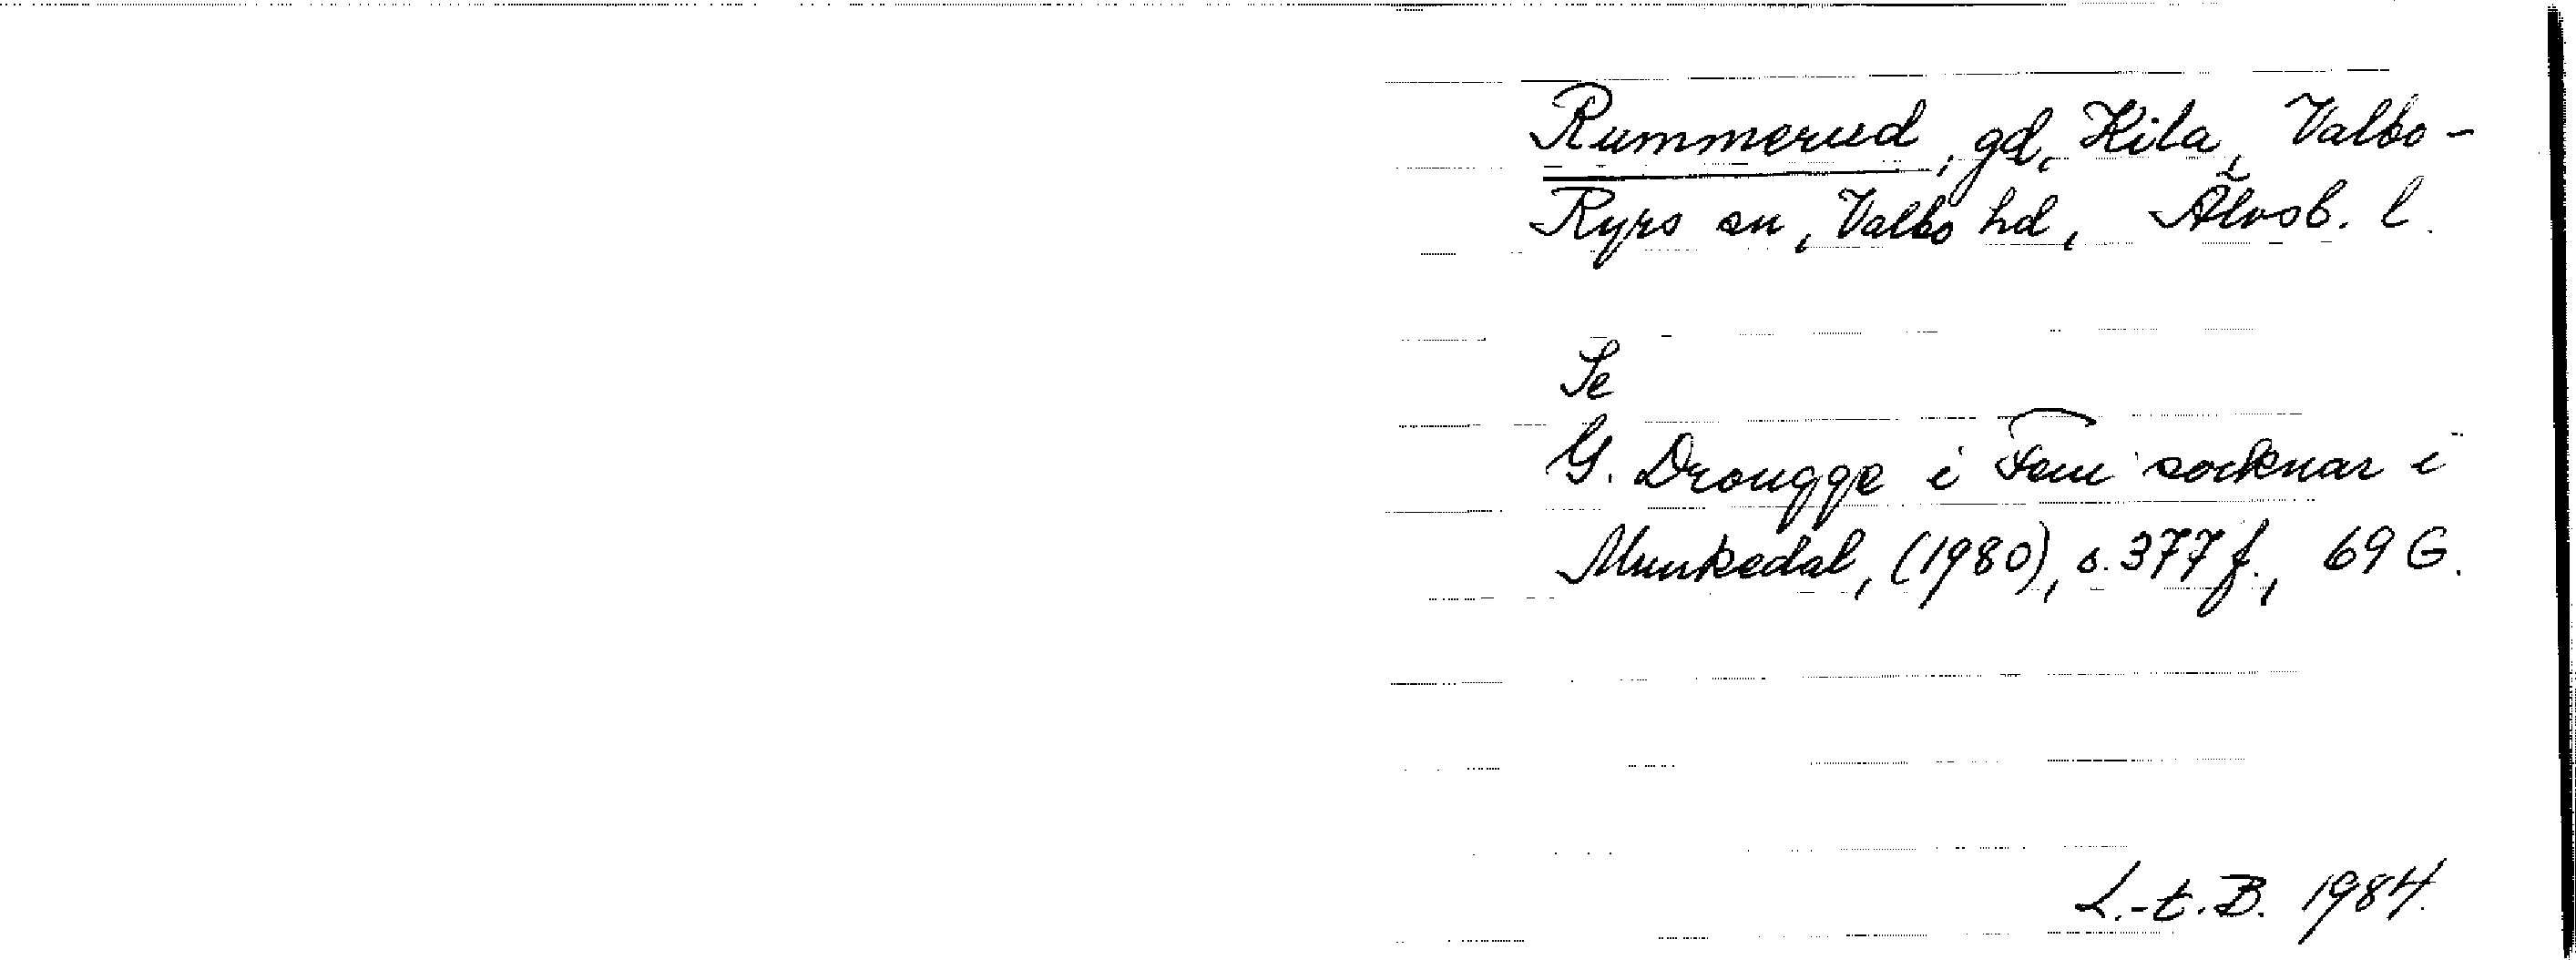 Rummerud, gd, Kila, Valbo-
Ryrs sn, Valbo hd, Älvsb. l.
Se
G. Drougge i Fem socknar i
Munkedal, (1980), s. 377 f., 69 G.
L.-E. B. 1984.